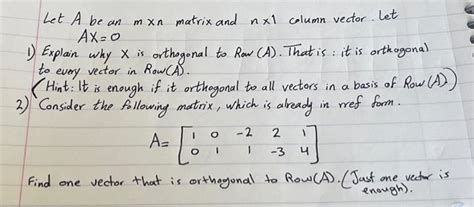 Let A be an m x n matrix and n x 1 column vector. Let
AX=0
1) Explain why X is orthogonal to Row (A). That is : it is orthogonal
to every vector in Row(A).
(Hint: It is enough if it orthogonal to all vectors in a basis of Row (A))
2) Consider the following matrix, which is already in rref form.
A= [ 1 0 -2 2 1
0 1 1 -3 4 ]
Find one vector that is orthogonal to Row(A). (Just one vector is
enough).